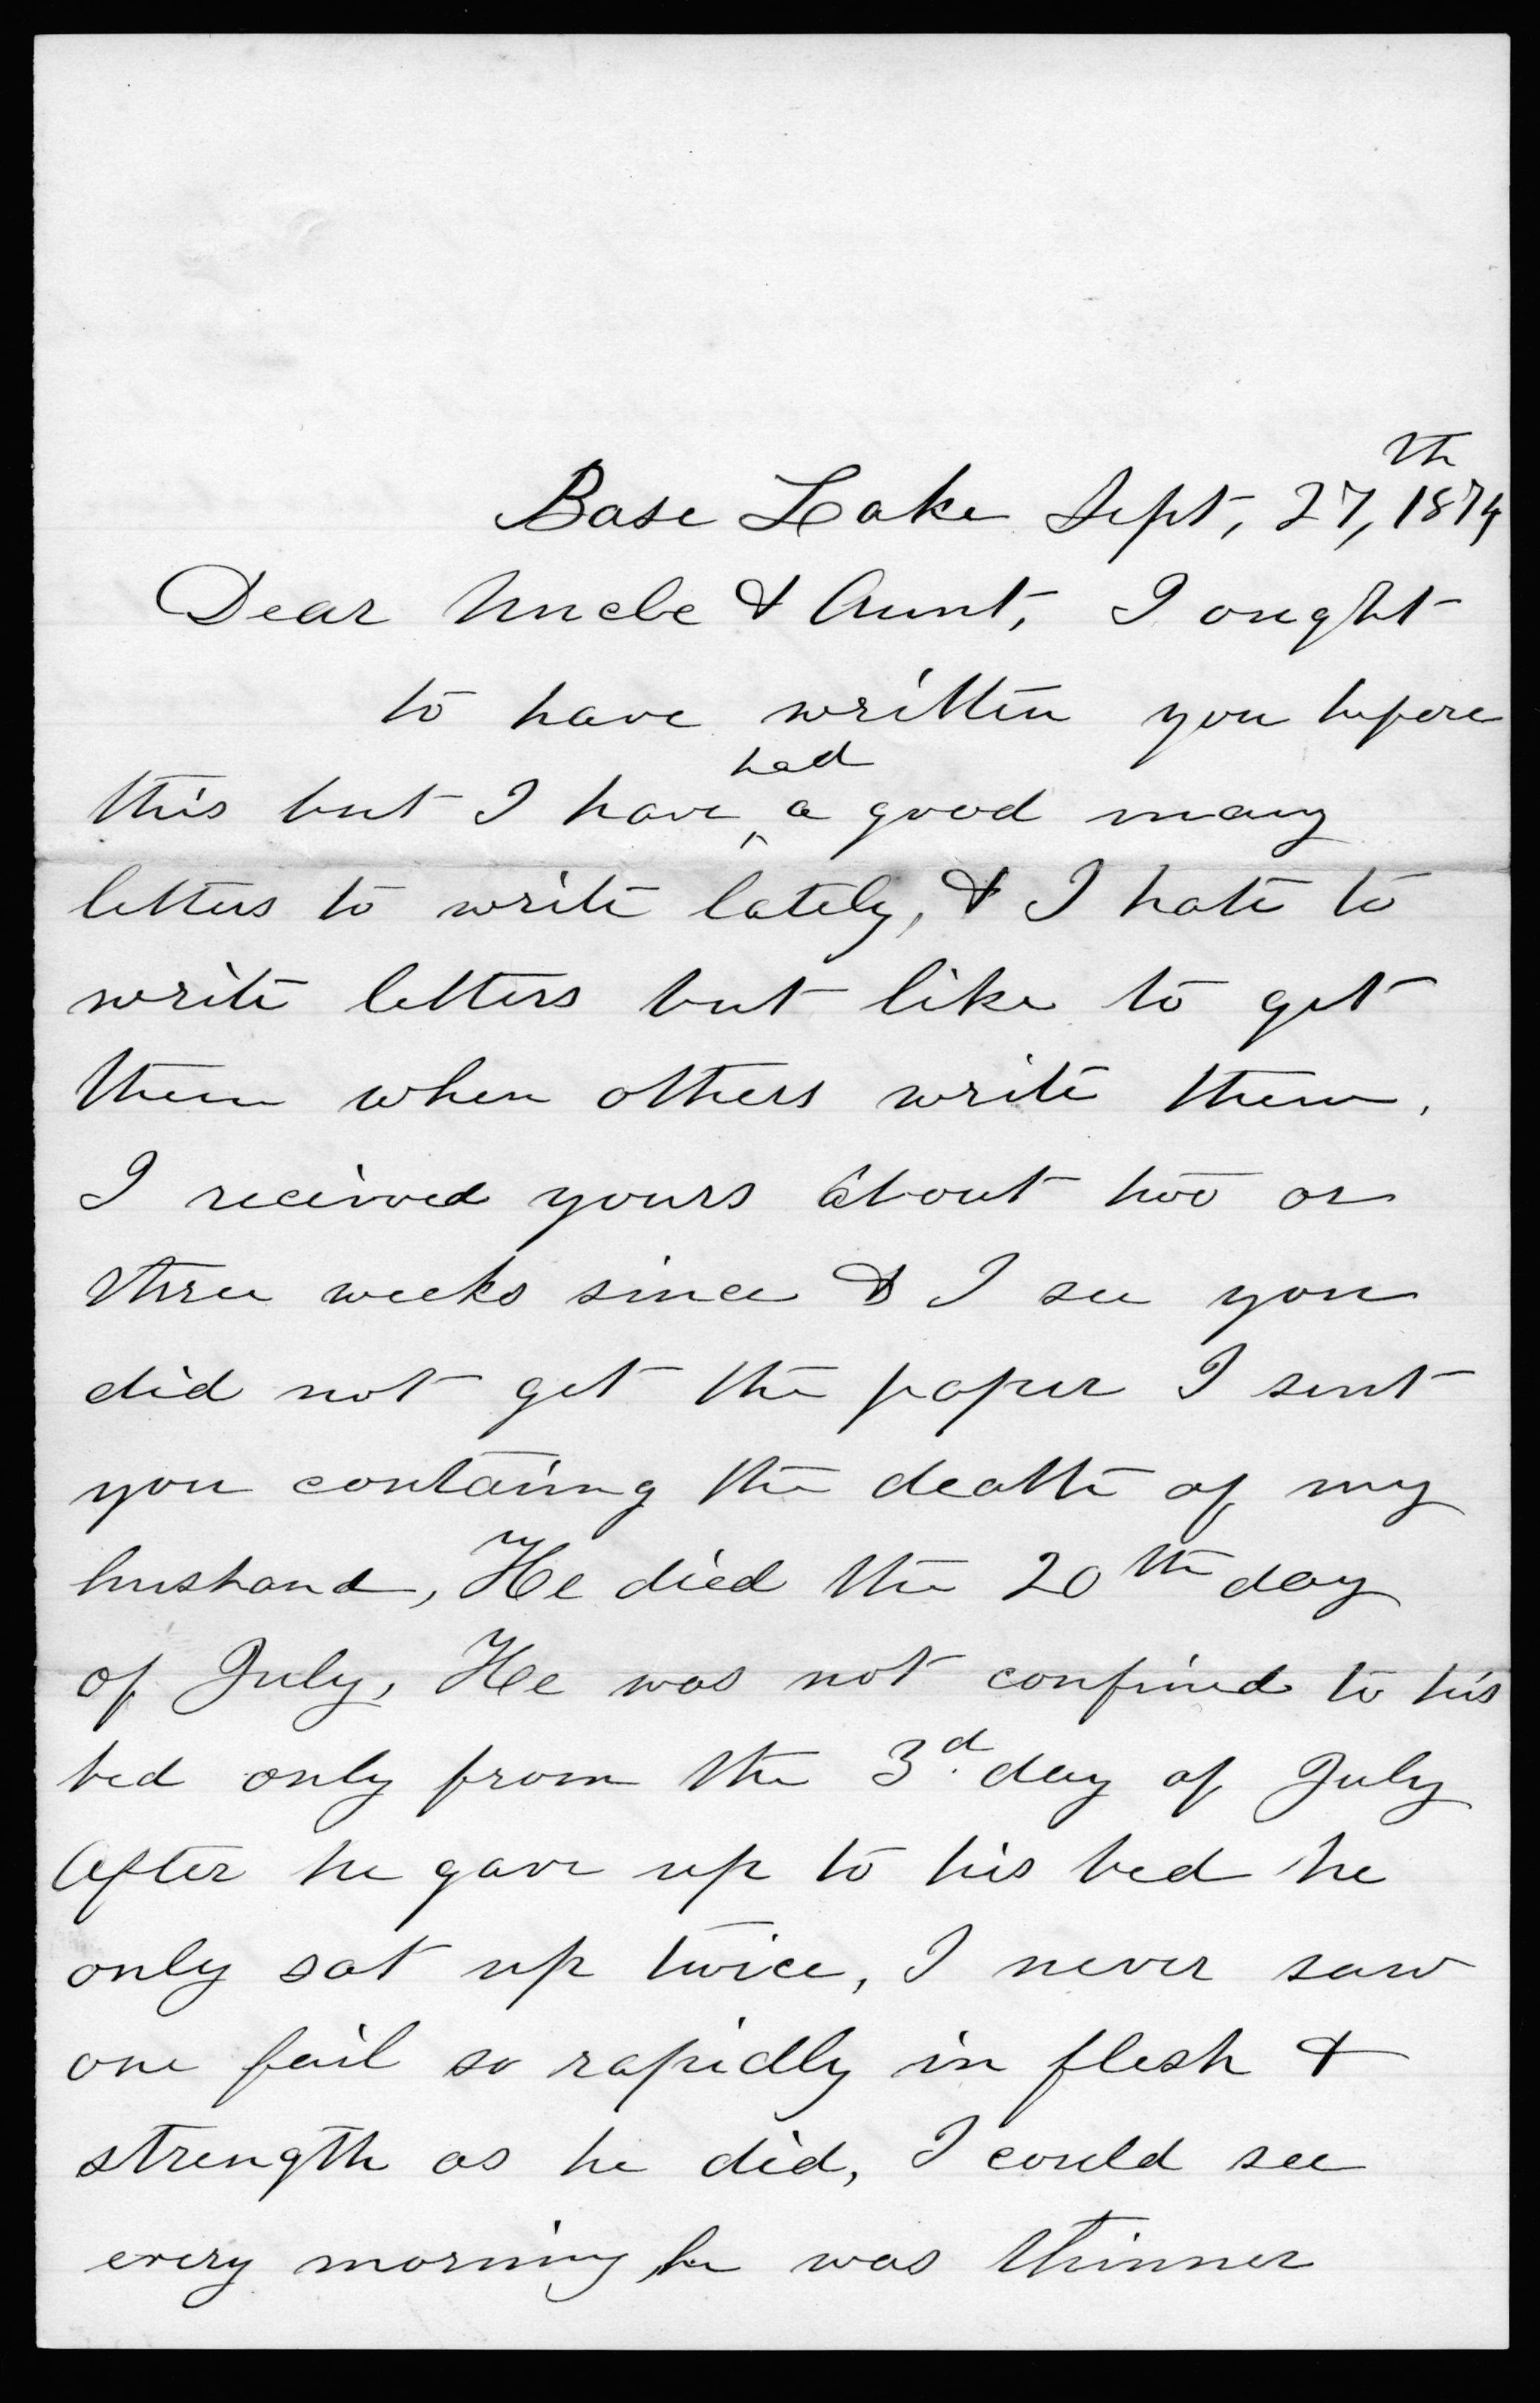 Base Lake Sept, 27,th 1874
Dear Uncle & Aunt, I ought
to have written you before
this but I have had a good many
letters to write lately, & I hate to
write letters but like to get
them when others write them.
I received yours about two or
three weeks since & I see you
did not get the paper I sent
you containg the death of my
husband, He died the 20th day
of July, He was not confined to his
bed only from the 3d. day of July
After he gave up to his bed he
only sat up twice, I never saw
one fail so rapidly in flesh &
strength as he did, I could see
every morning he was thinner